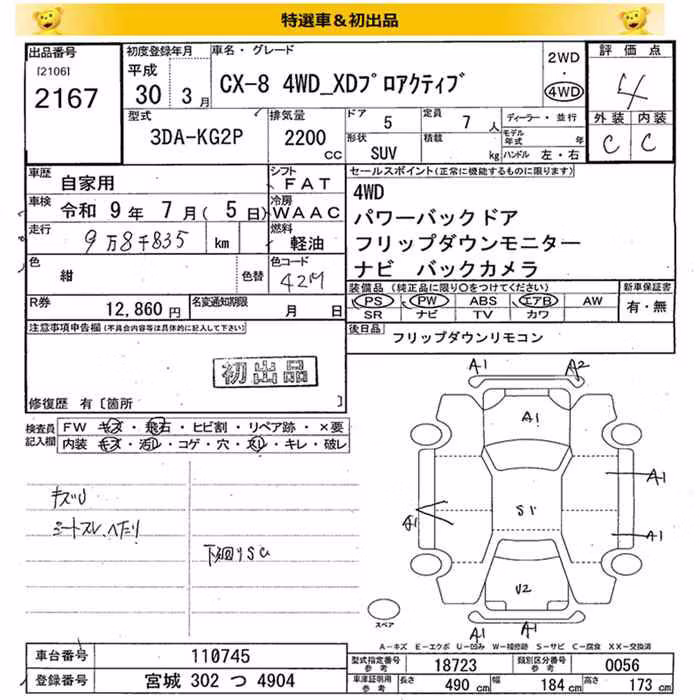 特選車＆初出品
出品番号
[2106]
2167
初度登録年月
平成
30 3月
車名・グレード
CX-8 4WD_XDプロアクティブ
2WD
・
4WD
評価点
4
外装 内装
C C
型式
3DA-KG2P
排気量
2200
CC
ドア
5
定員
7 人
形状
SUV
積載
kg
ディーラー・並行
モデル年式 年
ハンドル 左・右
車歴
自家用
シフト
FAT
車検
令和 9年 7月( 5日)
冷房
WAAC
走行
9万8千835 km
燃料
軽油
色
紺
色替
色コード
42M
R券
12,860円
名変通知期限
月 日
セールスポイント(正常に機能するものに限ります)
4WD
パワーバックドア
フリップダウンモニター
ナビ バックカメラ
装備品(純正品に限り○をつけてください)
PS PW ABS エアB AW
SR ナビ TV カワ
新車保証書
有・無
後日品
フリップダウンリモコン
注意事項申告欄(不具合内容等は具体的に記入して下さい)
初出品
修復歴 有〔箇所 〕
検査員記入欄
FW キズ・飛石・ヒビ割・リペア跡・×要
内装 キズ・汚レ・コゲ・穴・スレ・キレ・破レ
キズU
シートスレ、ヘたり
下廻りSU
A1 A2
A1
A1
A1 S1
A1
U2
A1 A1
スペア
A－キズ E－エクボ U－凹み W－補修跡 S－サビ C－腐食 XX－交換済
車台番号
110745
登録番号
宮城 302 つ 4904
型式指定番号 参考
18723
類別区分番号 参考
0056
車庫証明用 参考
長さ 490 cm
幅 184 cm
高さ 173 cm